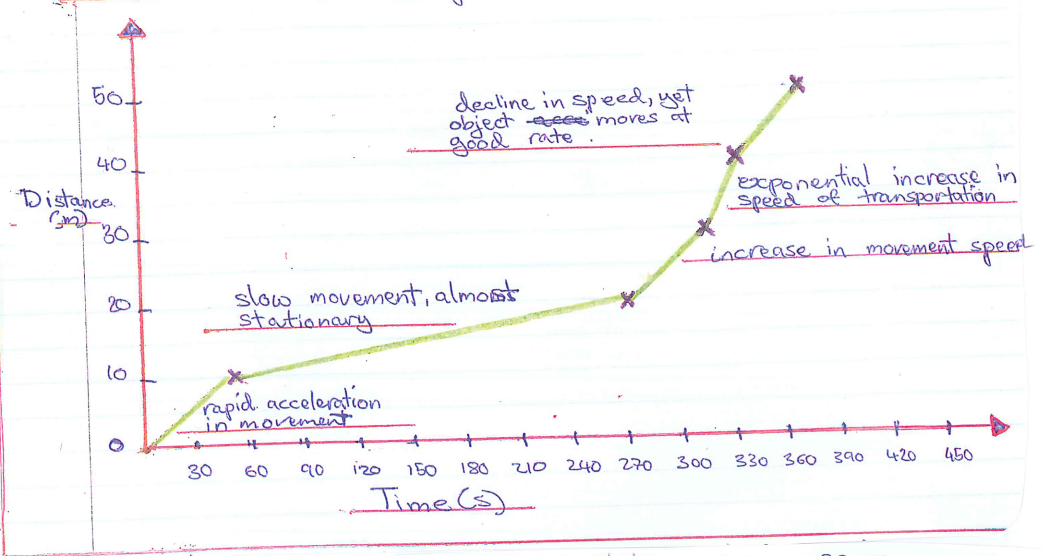 50
decline in speed, yet
object moves at
good rate.
40
exponential increase in
speed of transportation
Distance
(m)
30
increase in movement speed
slow movement, almost
stationary
20
10
rapid acceleration
in movement
0
30 60 90 120 150 180 210 240 270 300 330 360 390 420 450
Time (s)